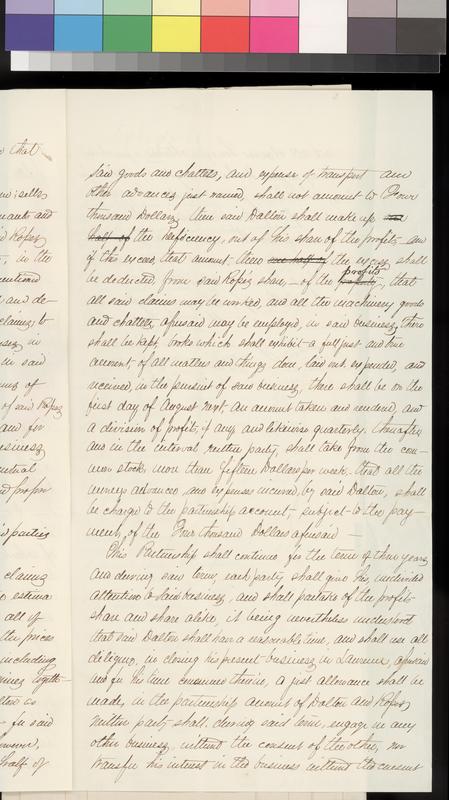 said goods and chattels, and expense of transport and
other advances just named, shall not amount to Four
thousand Dollars, then said Dalton shall make up one
half of the deficiency, out of his share of the profits - and
if they exceed that amount then one half of the excess shall
be deducted from said Ropes share - of the profits, that
all said claims may be worked, and all the machinery goods
and chattels aforesaid may be employed, in said business, there
shall be kept, books which shall exhibit a full just and true
account of all matters and things done, laid out, expended, and
received, in the pursuit of said business, there shall be on the
first day of August next, an account taken and rendered, and
a division of profits, if any, and likewise quarterly, thereafter
and in the interval neither party, shall take from the com-
mon stock more than fifteen Dollars per week. that all the
moneys advanced, and expenses incurred, by said Dalton, shall
be charged to the partnership account, subject to the pay-
ment, of the Four thousand Dollars aforesaid -
This Partnership shall continue for the term of three years,
and during said term, each party shall give his, undivided
attention to said business, and shall partake of the profits
share and share alike, it being nevertheless understood
that said Dalton shall have a reasonable time, and shall use all
diligence, in closing his present business in Lawrence, aforesaid
and for his time consumed therein, a just allowance shall be
made, in the partnership account of Dalton and Ropes,
neither party shall, during said term, engage in any
other business, without the consent of the other, nor
transfer his interest in the business without the consent
that
sells
and
Ropes
in the
and de-
claims, to
in
in said
of
of said Ropes
and for
business
mutual
parties
claims
estima
all of
the prices
including
as
in said
half of